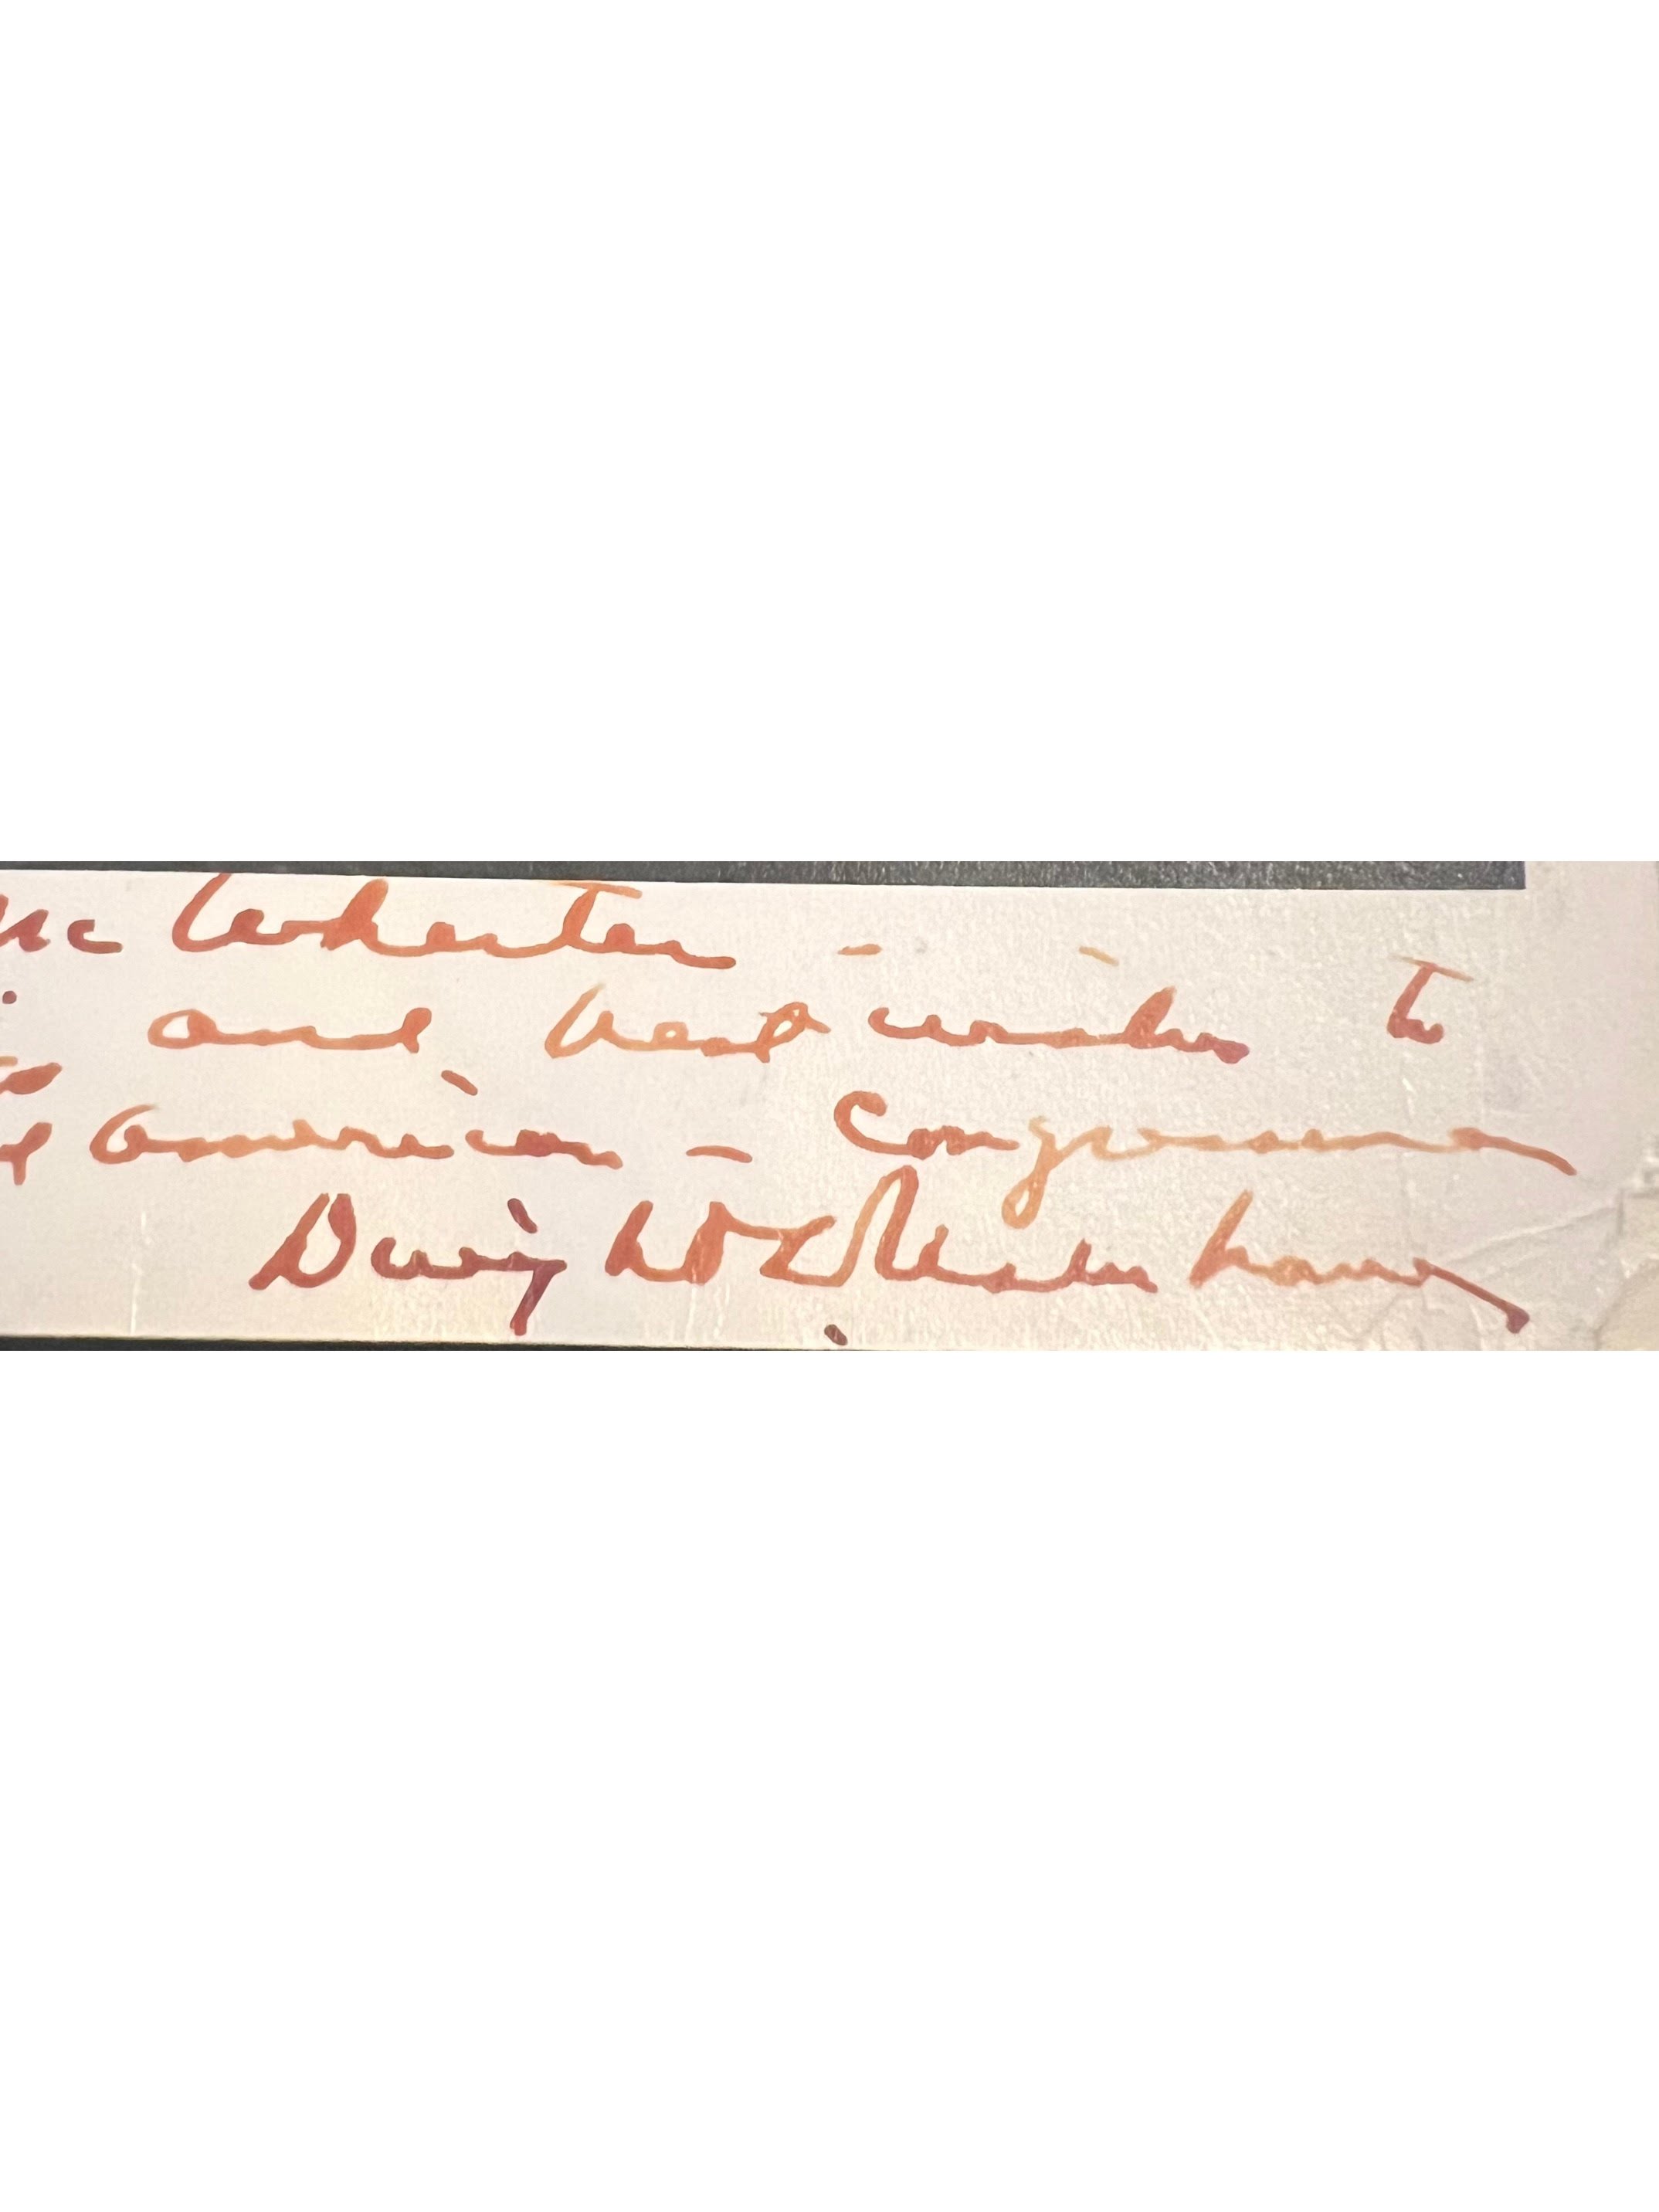 Mc Whorter -
and best wishes to
American - Congressman
Dwight D Eisenhower